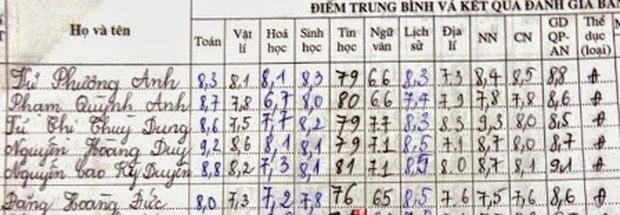 ĐIỂM TRUNG BÌNH VÀ KẾT QUẢ ĐÁNH GIÁ
Họ và tên Toán Vật lí Hoá học Sinh học Tin học Ngữ văn Lịch sử Địa lí NN CN GD QP-AN Thể dục (loại)
Từ Phương Anh 8,3 8,1 8,1 8,3 79 66 8,3 7 3 8,4 8,5 8,8 Đ
Phạm Quỳnh Anh 8,7 7,8 6,7 8,0 80 66 7,4 7 9 7,8 7,8 8,6 Đ
Từ Thị Thuỳ Dung 8,6 7,5 7,7 8,2 79 77 8,3 8 3 9,3 8,0 8,5 Đ
Nguyễn Hoàng Duy 9,2 8,6 8,1 8,1 79 71 8,5 7 1 8,7 8,0 8,7 Đ
Nguyễn Cao Kỳ Duyên 8,8 8,2 7,3 8,1 81 71 8,5 8 0 8,7 8,1 9,1 Đ
Đặng Hoàng Đức 8,0 7,3 7,2 7,8 76 65 8,5 7 6 7,5 7,6 8,6 Đ